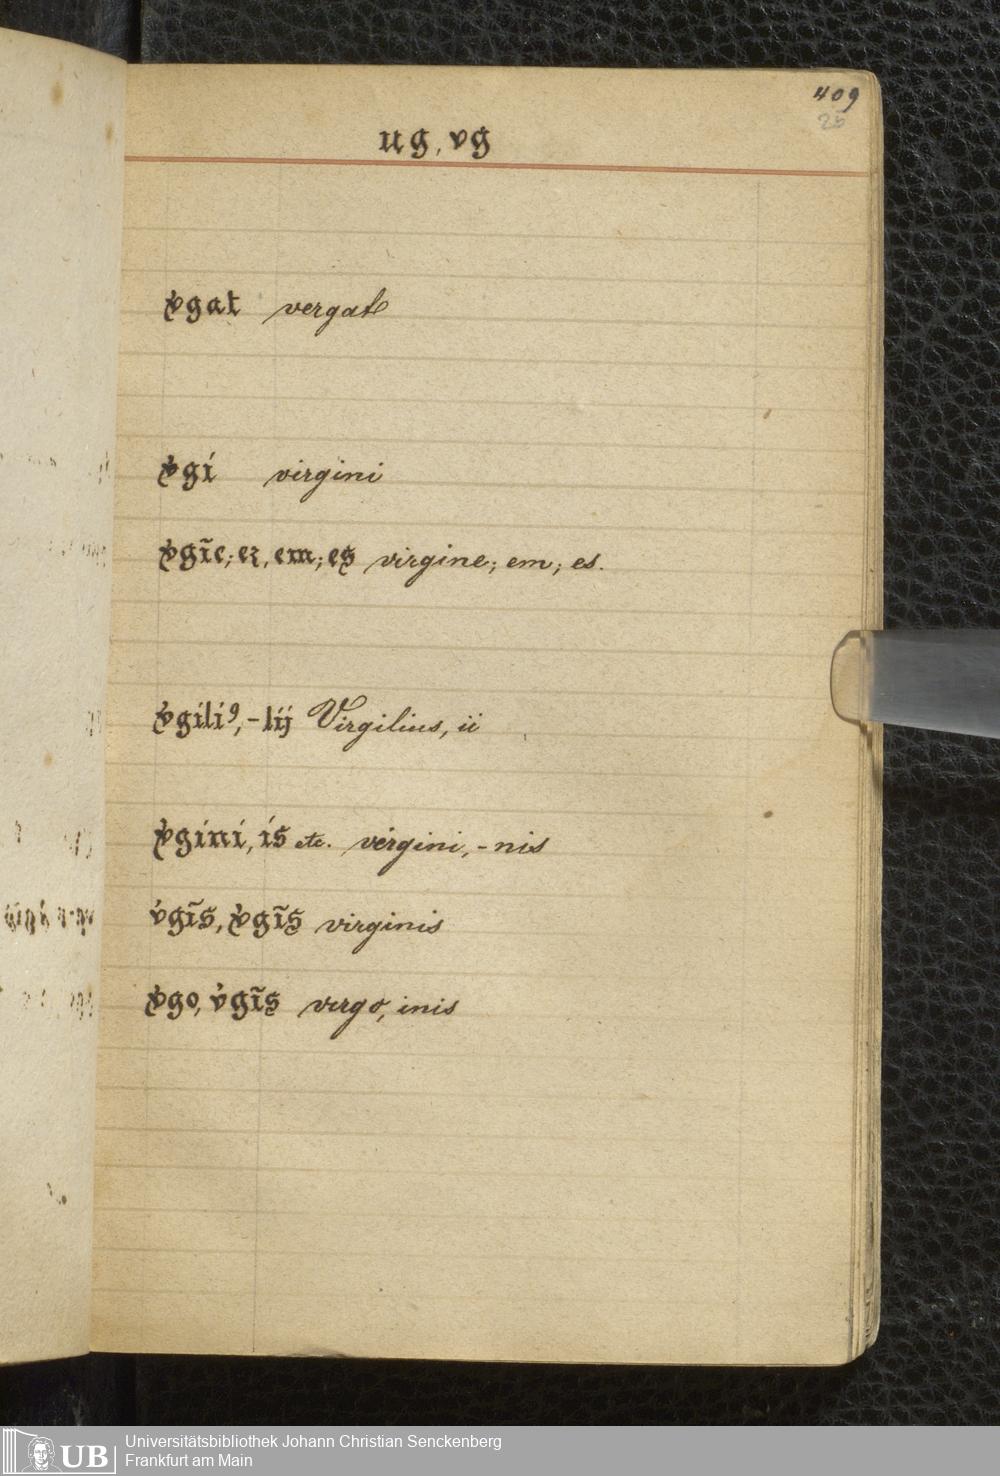 409
25
ug, vg
v̓gat vergat
v̓gí virgini
v̓gı̃e; ez, em; es virgine; em; es.
v̓gilíꝰ, -líj Virgilius, ii
v̓gíní, ís etc. virgini, -nis
v̓gı̃s, v̓gı̃s virginis
v̓go, v̓gı̃s virgo, inis
UB
Universitätsbibliothek Johann Christian Senckenberg
Frankfurt am Main